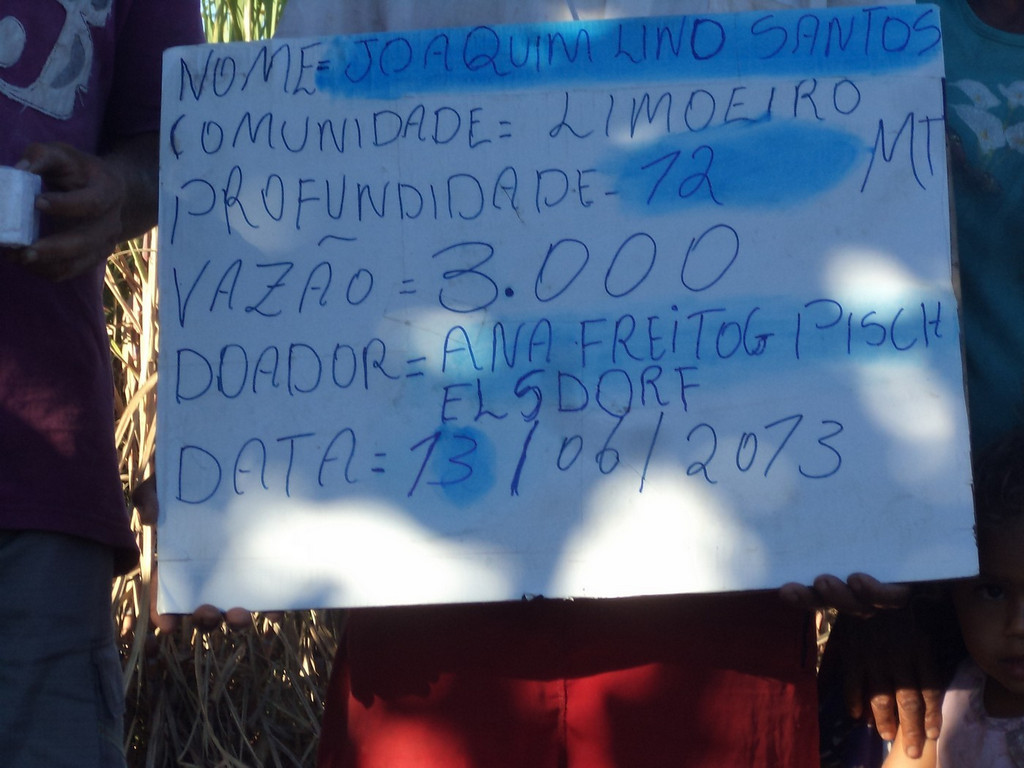 NOME= JOAQUIM LINO SANTOS
COMUNIDADE= LIMOEIRO
PROFUNDIDADE- 12 MT
VAZÃO = 3.000
DOADOR= ANA FREITOG PISCH
ELSDORF
DATA= 13/06/2013